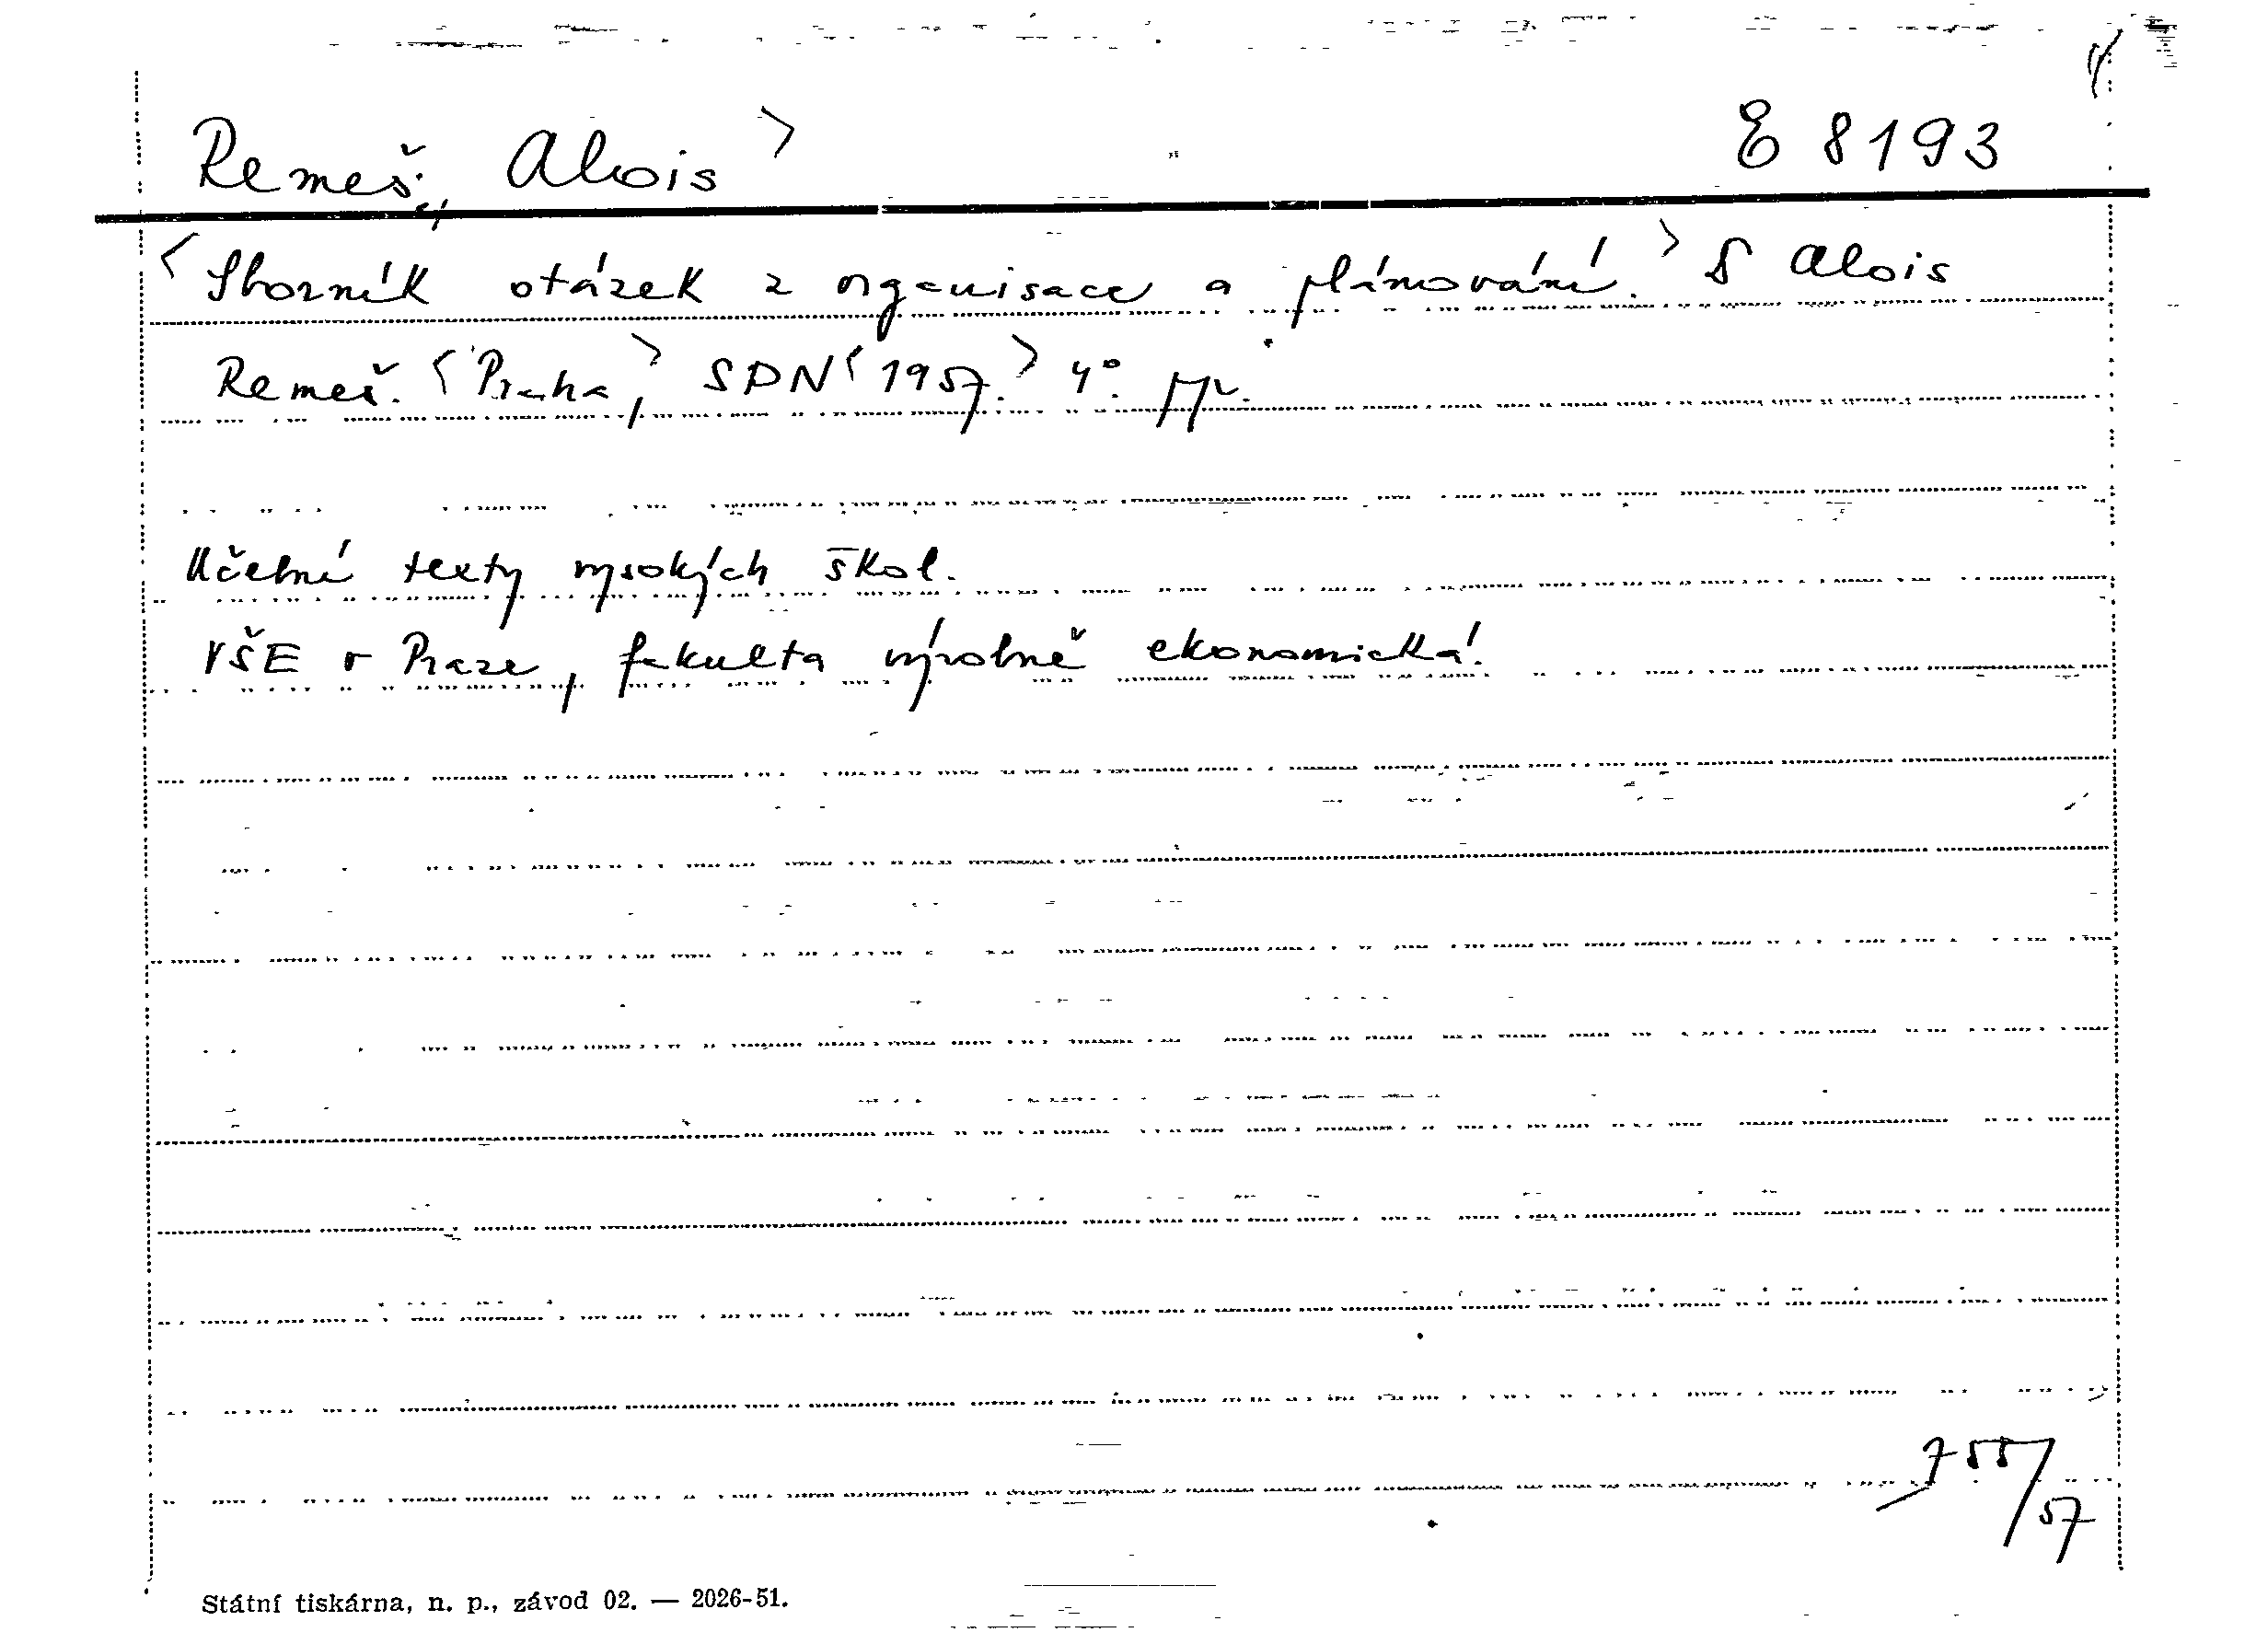 Remeš, Alois> E 8193
<Sborník otázek z organisace a plánování.> S Alois
Remeš. <Praha,> SPN <1957.> 4°.
Učební texty vysokých škol.
VŠE v Praze, fakulta výrobně ekonomická.
755/57
Státní tiskárna, n. p., závod 02. — 2026-51.